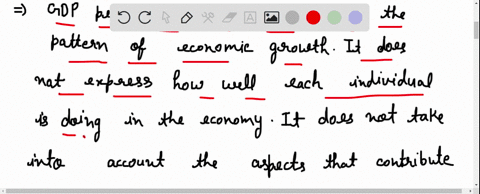 => GDP pe the
pattern of economic growth. It does
not express how well each individual
is doing in the economy. It does not take
into account the aspects that contribute